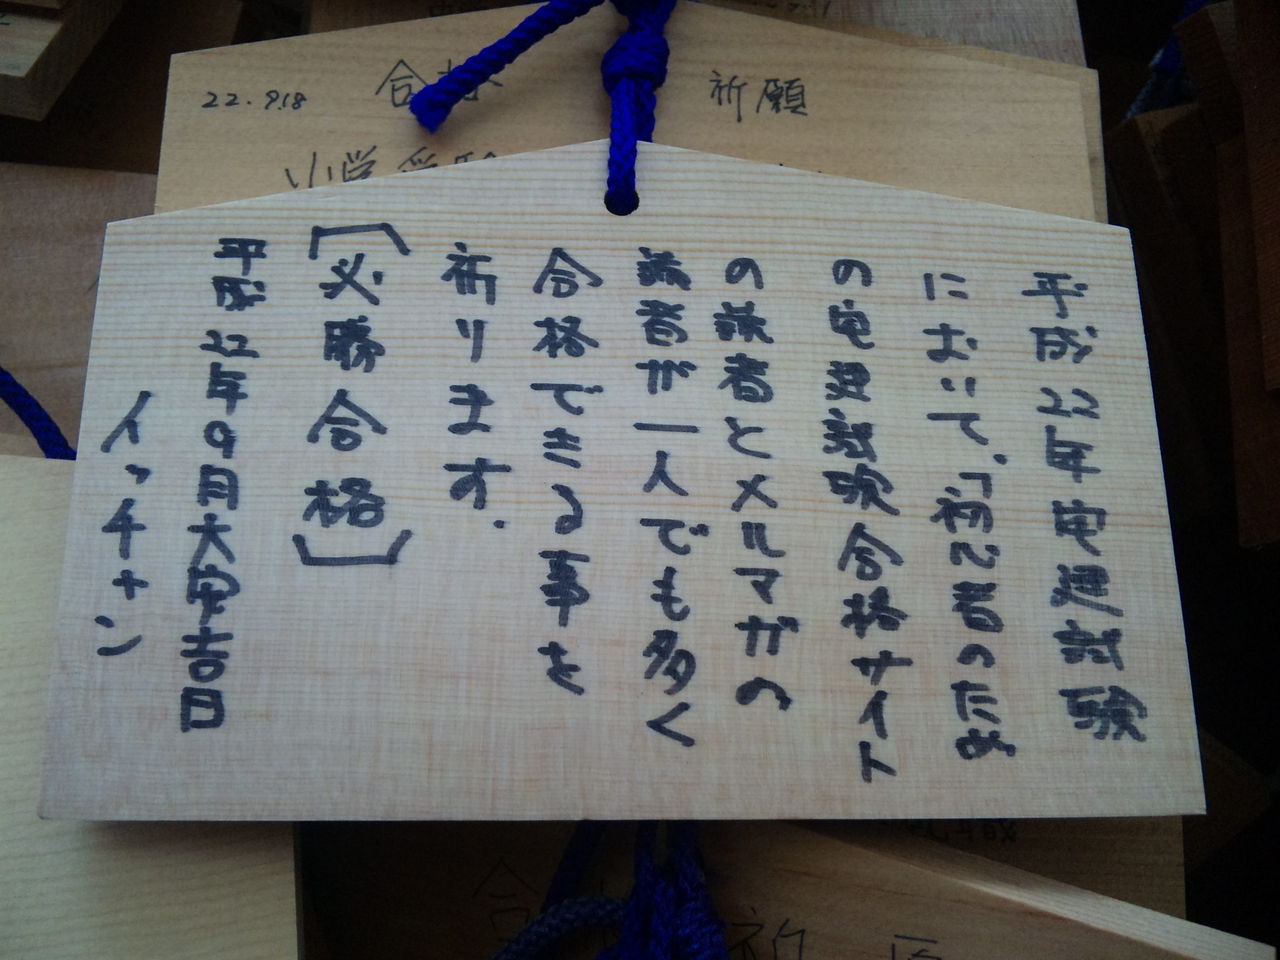 平成22年宅建試験
において、「初心者のため
の宅建試験合格サイト
の読者とメルマガの
読者が一人でも多く
合格できる事を
祈ります.
〔必勝合格〕
平成22年9月大安吉日
イッチャン
22.9.18
合格
祈願
小学受験